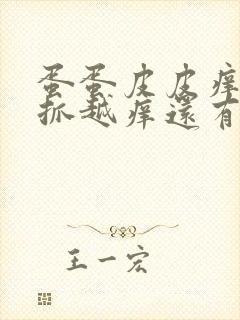 蛋蛋皮皮痒
抓越痒還有
王一宏